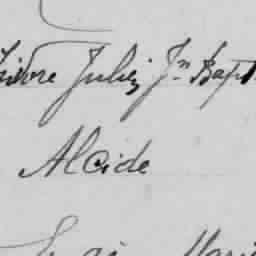 Isidore Julien Jn Bapt
Alcide